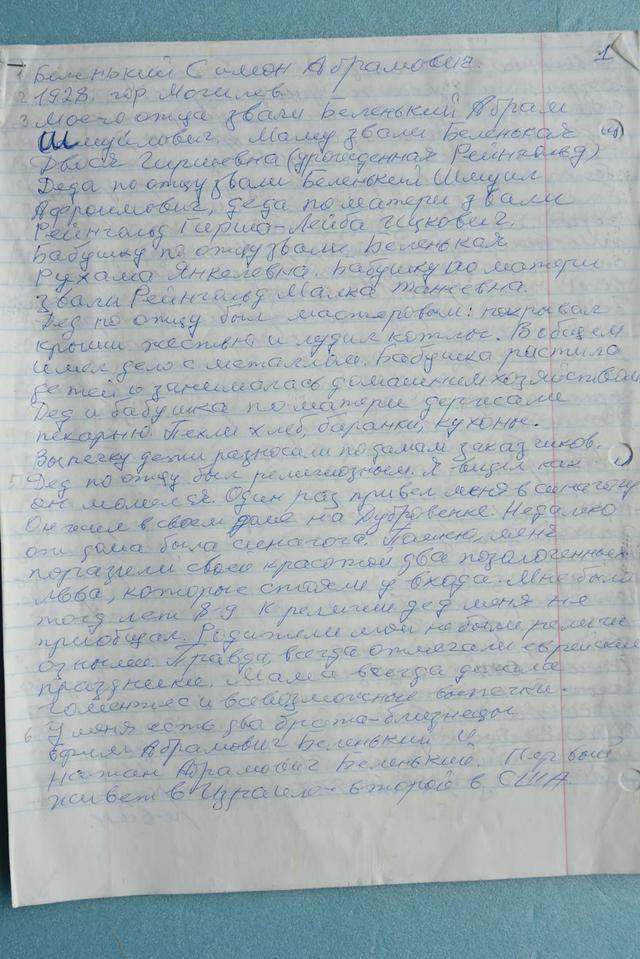 1
1 Беленький Симон Абрамович.
2 1928 гор Могилев.
3 Моего отца звали Беленький Абрам
Шмуйлович. Маму звали Беленькая
Двося Гиршевна (урожденная Рейнгольд)
Деда по отцу звали Беленький Шмуил
Афроимович, деда по матери звали
Рейнгольд Гирша-Лейба Ицкович.
Бабушку по отцу звали Беленькая
Рухама Янкелевна. Бабушку по матери
звали Рейнгольд Малка
Дед по отцу был мастеровым: покрывал
крыши жестью и лудил котлы. В общем
имел дело с металлом. Бабушка растила
детей и занималась домашним хозяйством
Дед и бабушка по матери держали
пекарню. Пекли хлеб, баранки, кухоны.
Выпечку дети разносили по домам заказчиков.
5 Дед по отцу был религиозным. Я видел как
он молился. Один раз привел меня в синагогу
Он жил в своем доме на Дубровенке. Недалеко
от дома была синагога. Помню, меня
поразили своей красотой два позолоченных
льва, которые стояли у входа. Мне было
тогд лет 8-9 К религии дед меня не
приобщал. Родители мои не были религи
озными. Правда, всегда отмечали еврейские
праздники. Мама всегда делала
и всевозможные выпечки.
6. У меня есть два брата-близнецы
Ефим Абрамович Беленький и
Натан Абрамович Беленький. Первый
живет в Израиле - второй в США